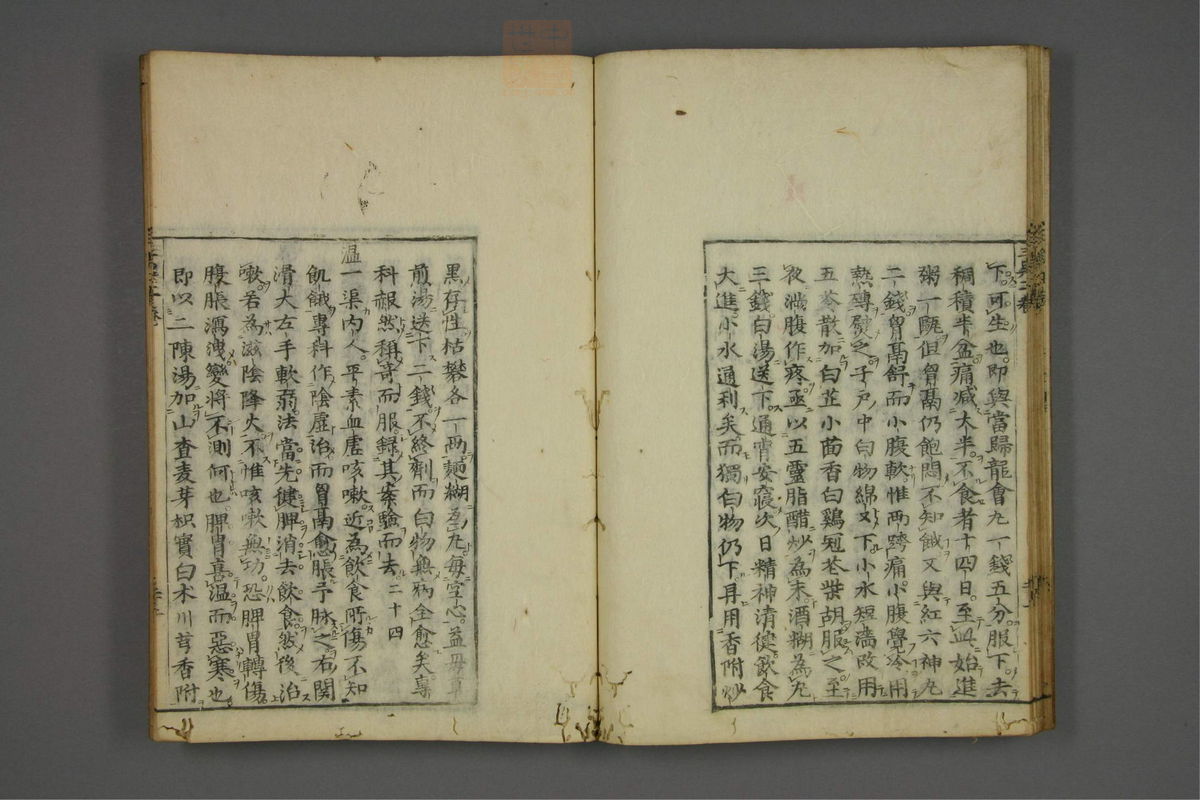 下可生也即與當歸龍會丸一錢五分服下去
稠積半盆痛減大半不食者十四日至此始進
粥一甌但胷鬲仍飽悶不知餓又與紅六神丸
二錢胷鬲舒而小腹軟惟兩跨痛小腹覺冷用
熱磚熨之子戶中白物綿又下小水短濇改用
五苓散加白芷小茴香白鷄冠花柴胡服之至
夜滿腹作疼亟以五靈脂醋炒為末酒糊為丸
三錢白湯送下通宵安寢次日精神清健飲食
大進小水通利矣而獨白物仍下再用香附炒
黑存性枯礬各一兩麵糊為丸每空心益母草
煎湯送下二錢不終劑而白物無病全愈矣專
科赧然稱奇而服録其案驗而去二十四
温一渠內人平素血虛咳嗽近為飲食所傷不知
飢餓專科作陰虛治而胷鬲愈脹予脉之右關
滑大左手軟弱法當先健脾消去飲食然後治
嗽若為滋陰降火不惟咳嗽無功恐脾胃轉傷
腹脹瀉洩變將不測何也脾胃喜温而惡寒也
即以二陳湯加山査麦芽枳實白朮川芎香附